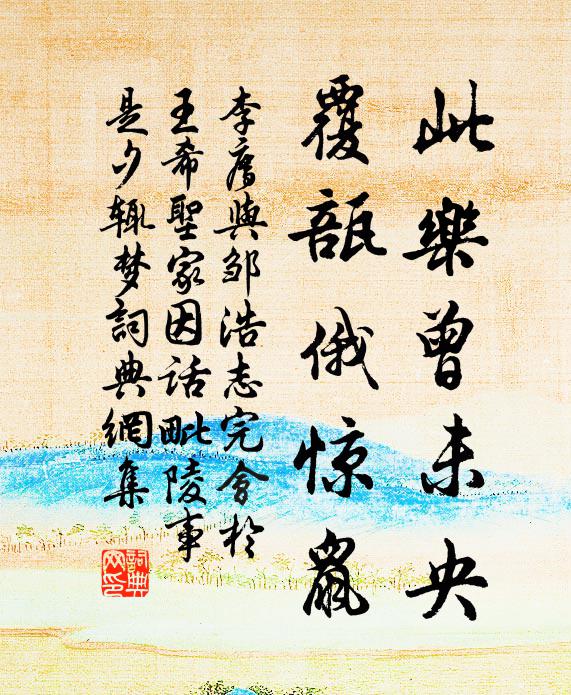 此樂曾未央
覆瓿俄惊鼠
李廌與邹浩志完會於
王希聖家因话毗陵事
是夕辄梦詞典網集
詞典
网印